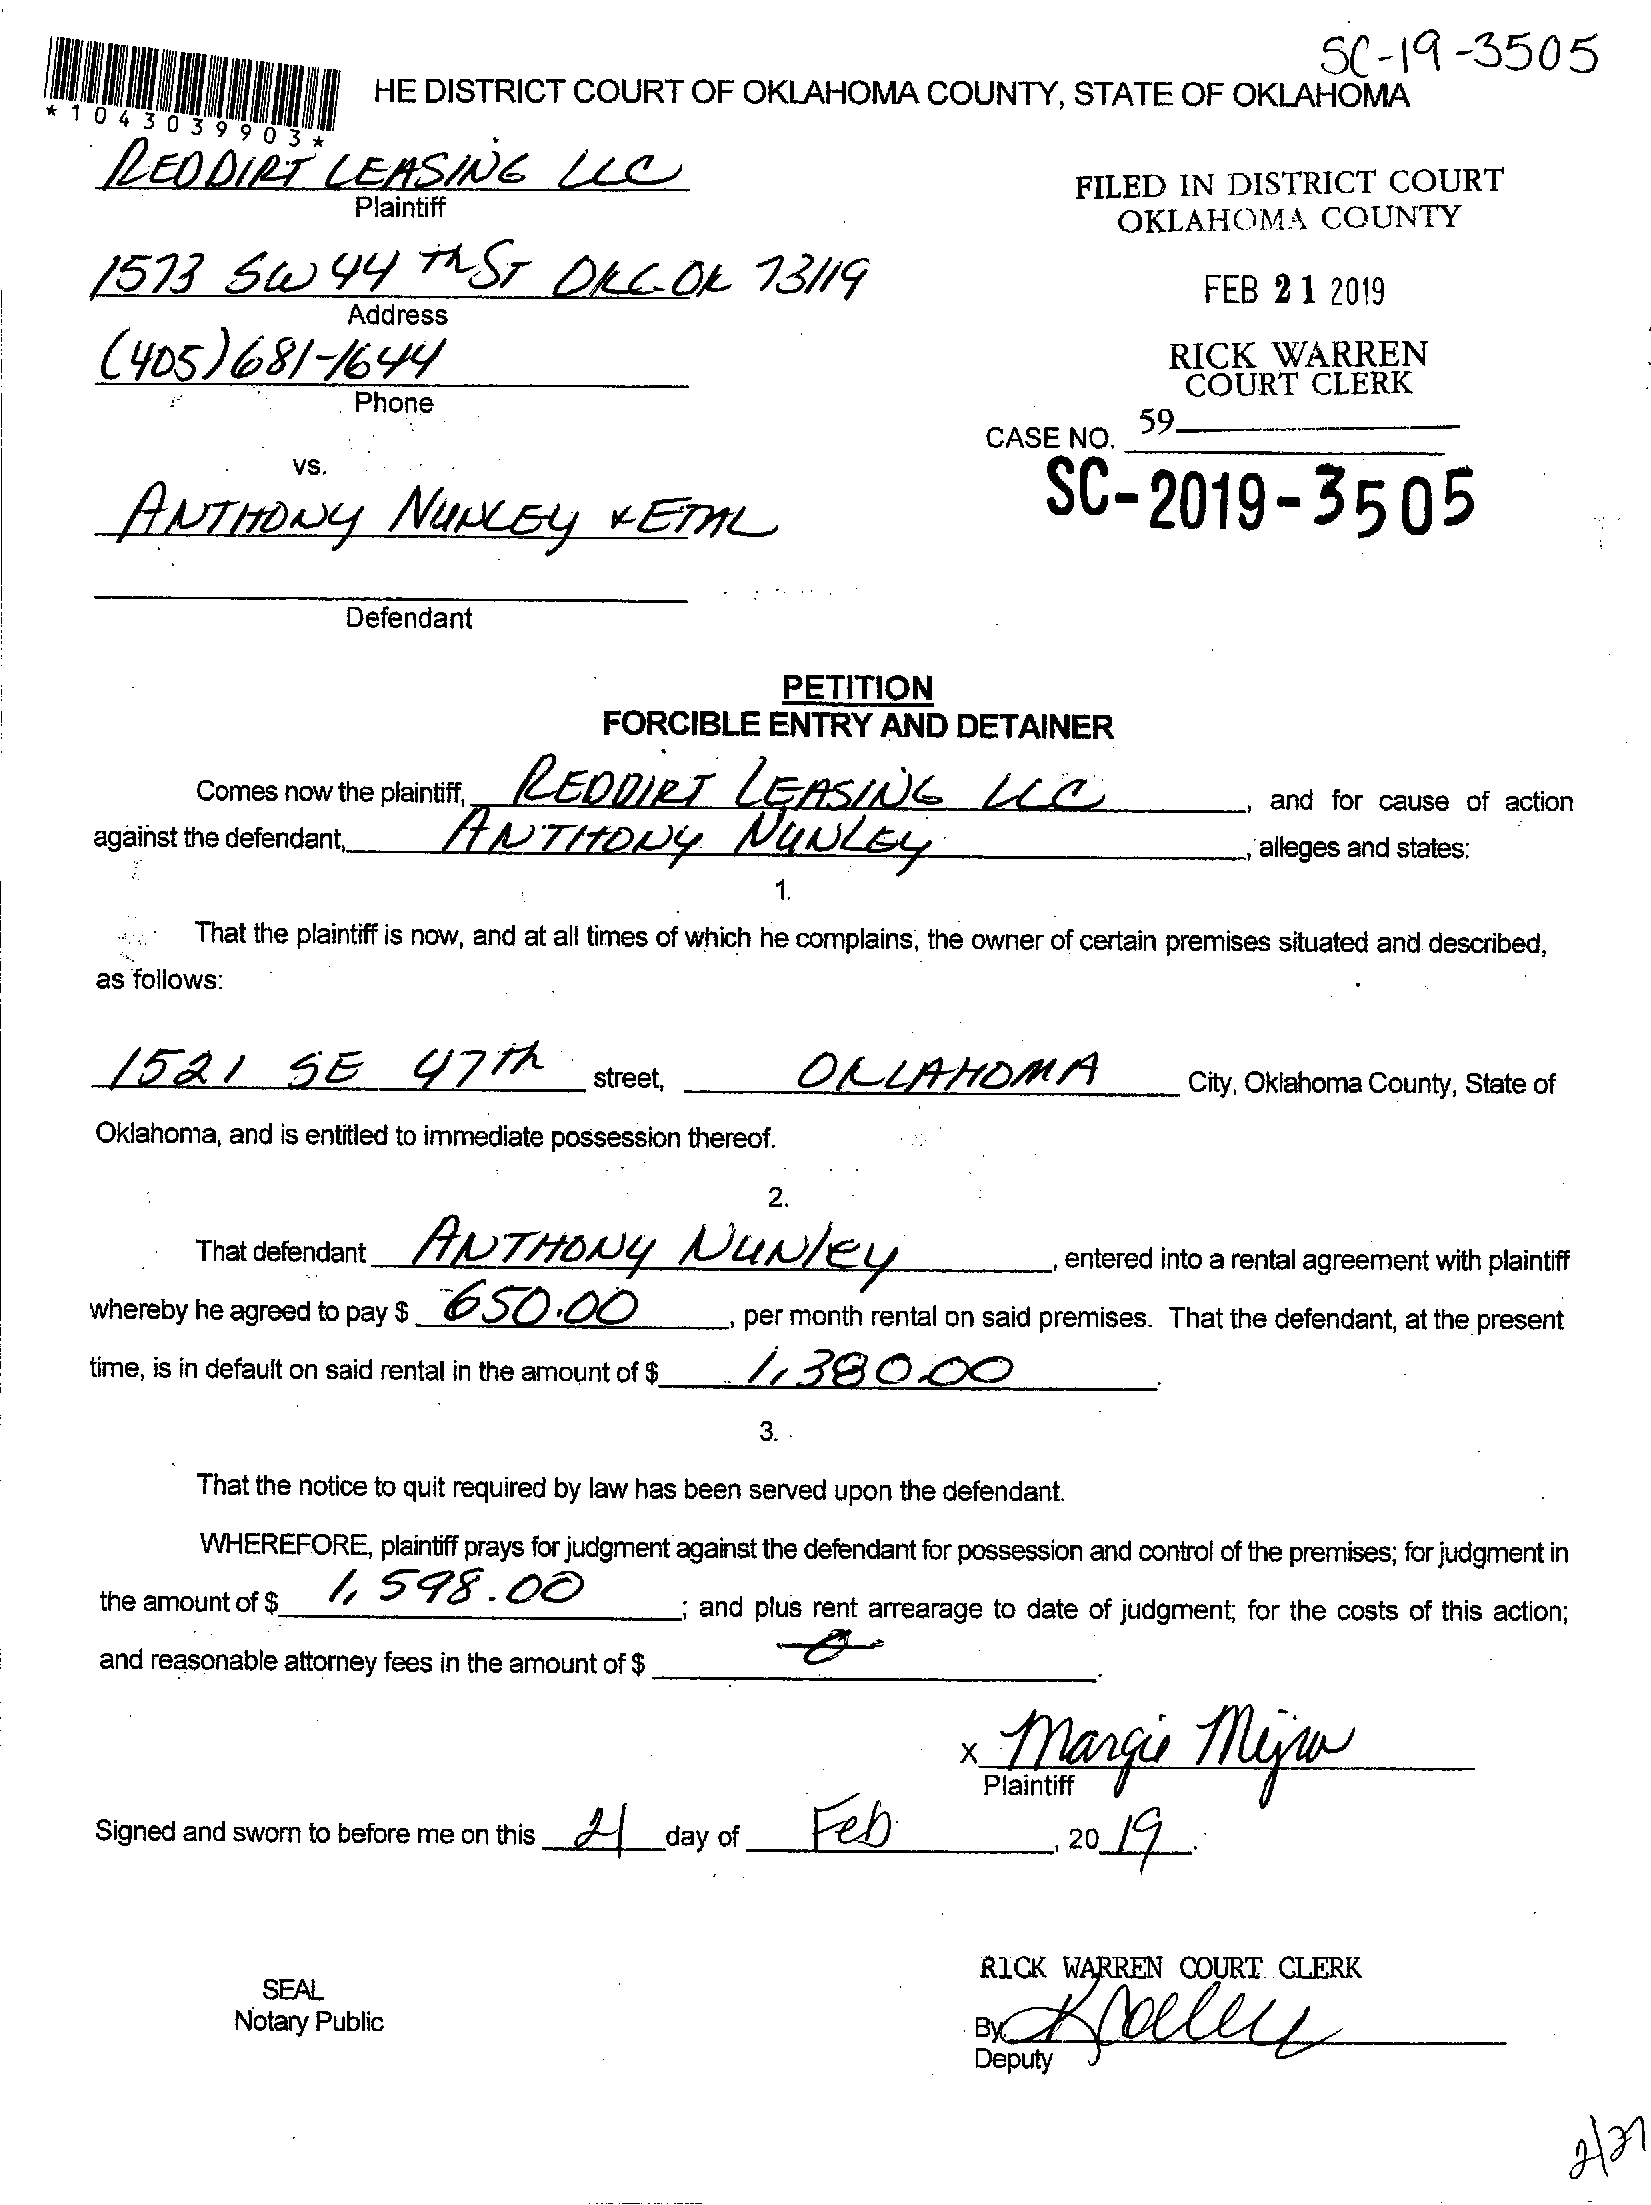 SC-19-3505
HE DISTRICT COURT OF OKLAHOMA COUNTY, STATE OF OKLAHOMA
*1043039903*
REDDIRT LEASING LLC
Plaintiff
FILED IN DISTRICT COURT
OKLAHOMA COUNTY
1573 SW 44 th ST OKC. OK 73119
Address
FEB 21 2019
(405)681-1644
Phone
RICK WARREN
COURT CLERK
59
CASE NO.
vs.
SC-2019-3505
ANTHONY NUNLEY & ETAL
Defendant
PETITION
FORCIBLE ENTRY AND DETAINER
Comes now the plaintiff, REDDIRT LEASING LLC, and for cause of action
against the defendant, ANTHONY NUNLEY, alleges and states:
1.
That the plaintiff is now, and at all times of which he complains, the owner of certain premises situated and described,
as follows:
1521 SE 47th street, OKLAHOMA City, Oklahoma County, State of
Oklahoma, and is entitled to immediate possession thereof.
2.
That defendant ANTHONY NUNley, entered into a rental agreement with plaintiff
whereby he agreed to pay $ 650.00, per month rental on said premises. That the defendant, at the present
time, is in default on said rental in the amount of $ 1,380.00.
3.
That the notice to quit required by law has been served upon the defendant.
WHEREFORE, plaintiff prays for judgment against the defendant for possession and control of the premises; for judgment in
the amount of $ 1,598.00; and plus rent arrearage to date of judgment; for the costs of this action;
and reasonable attorney fees in the amount of $ 0.
x Margie
Plaintiff
Signed and sworn to before me on this 21 day of Feb, 2019.
RICK WARREN COURT CLERK
SEAL
Notary Public
By
Deputy
2/27